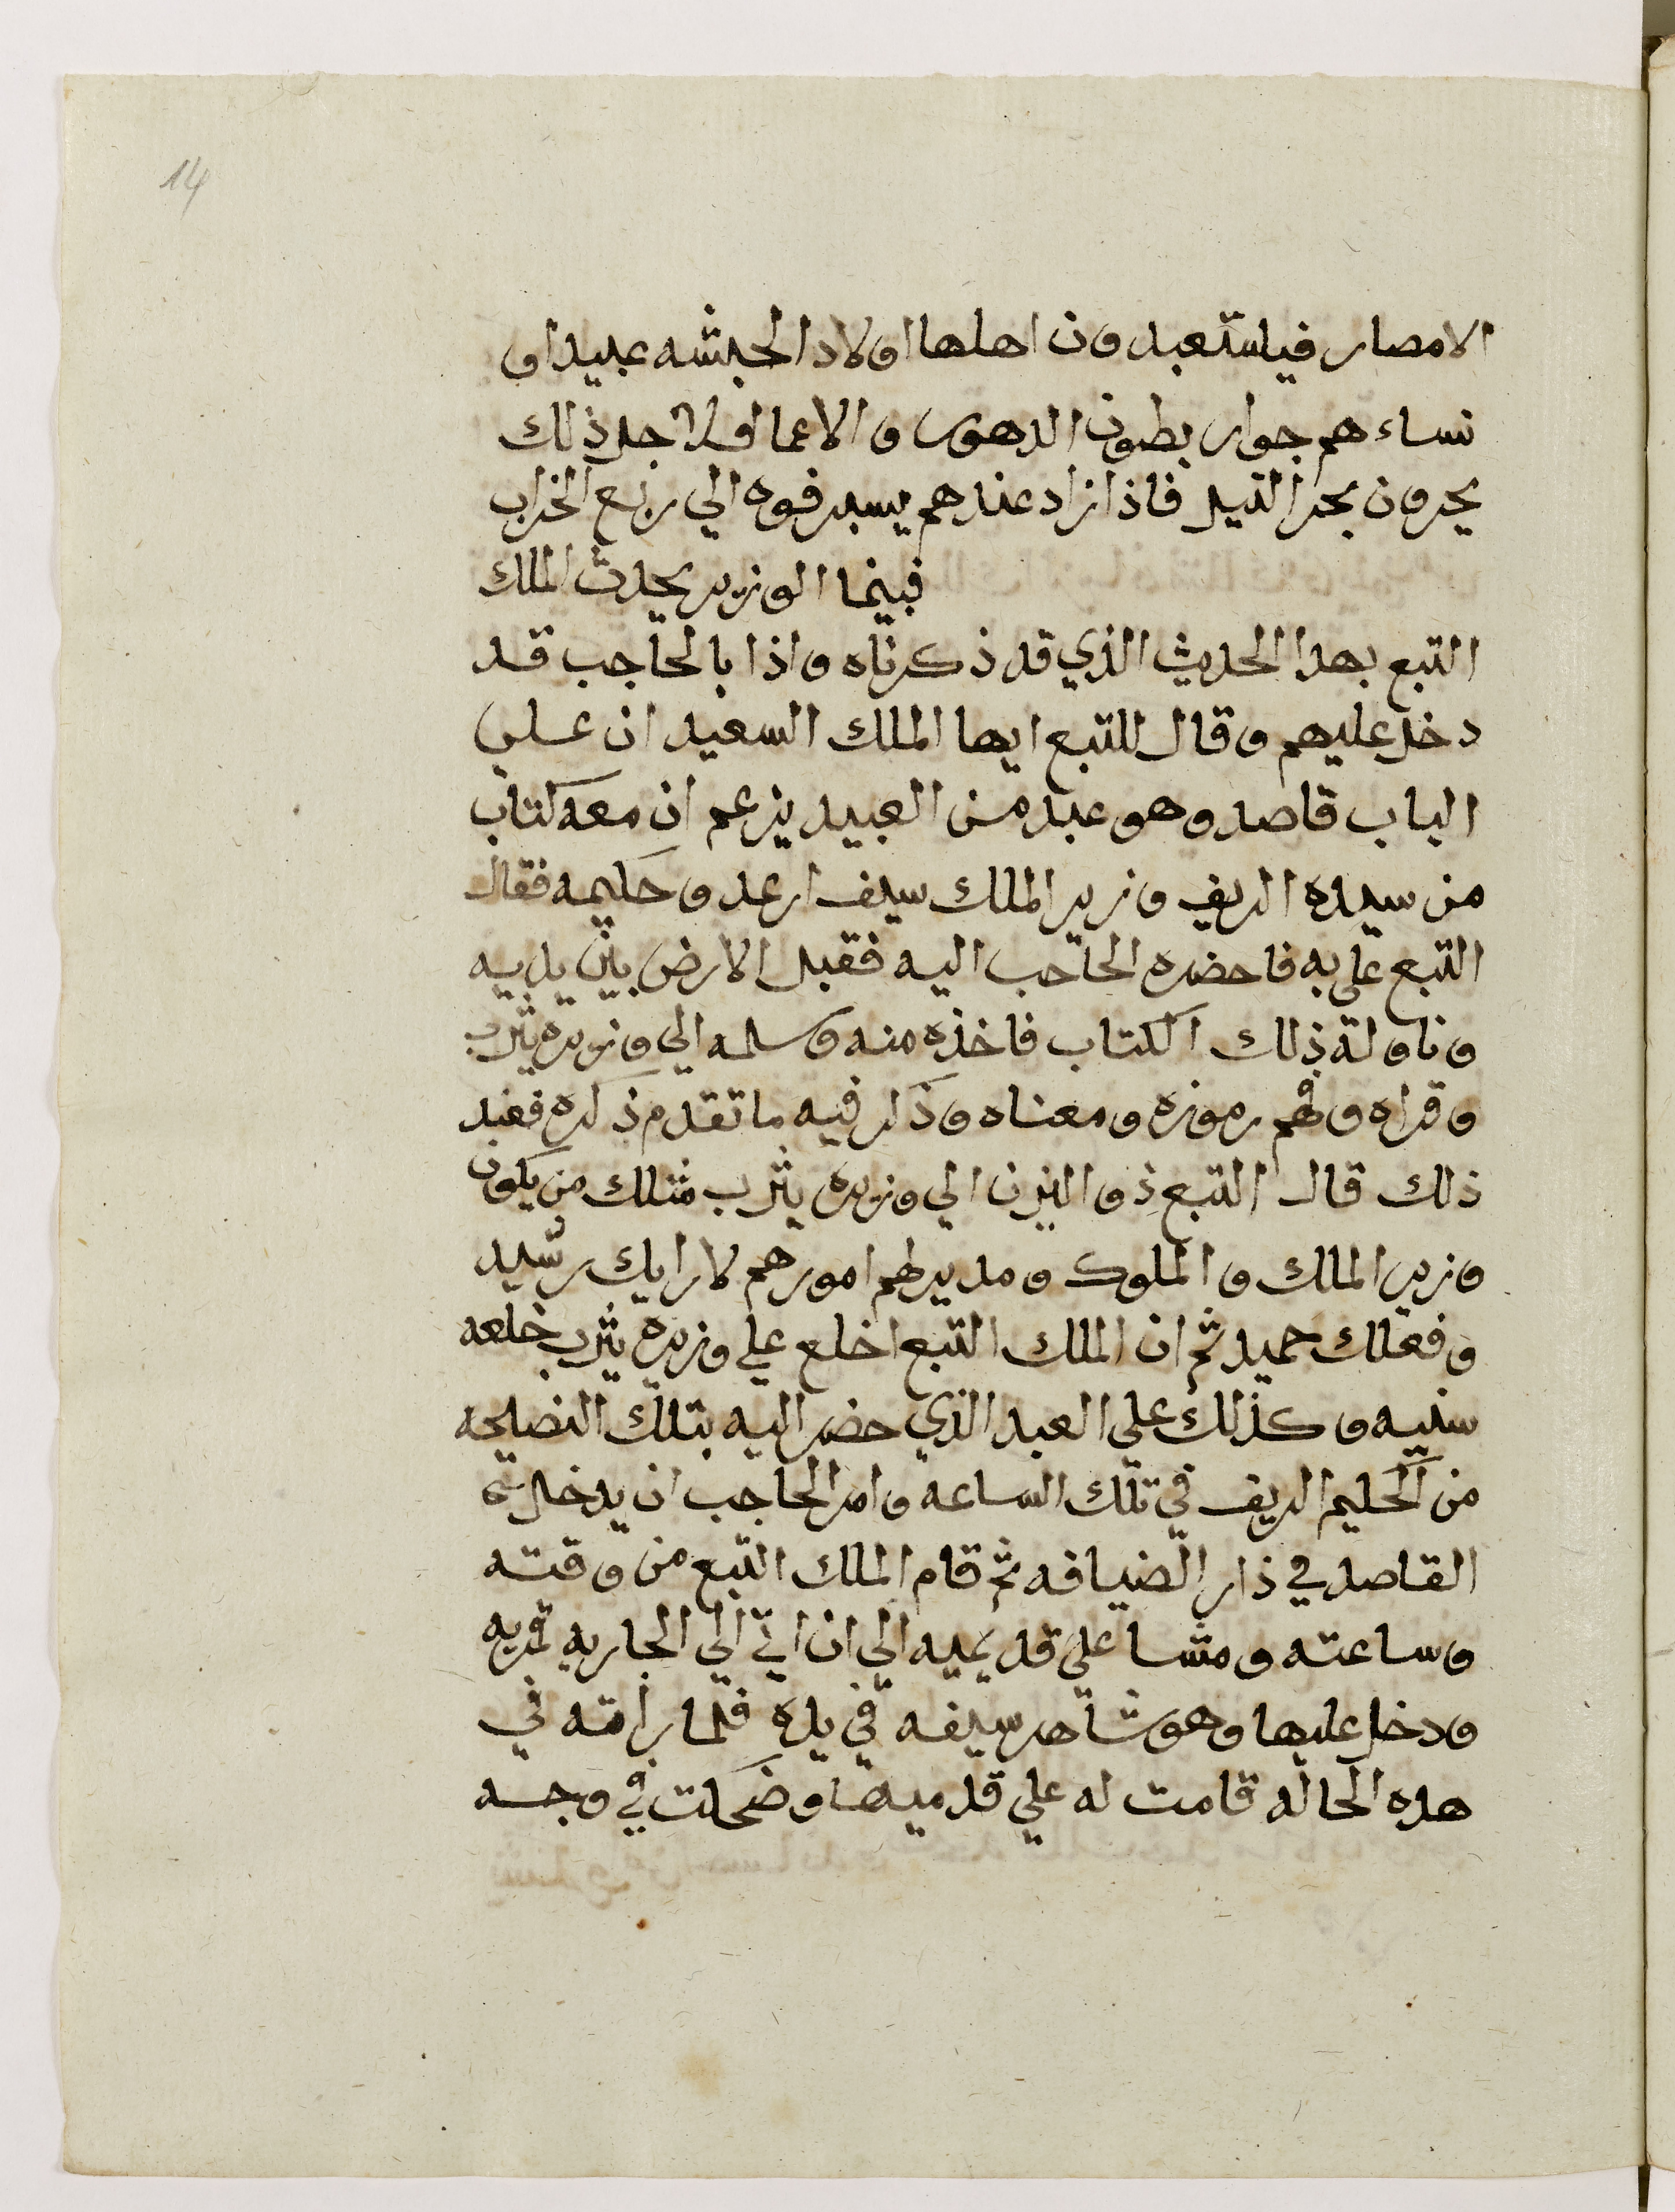 14
الامصار فيستعبدون اهلها اولاد الحبشه عبيدا و
نساء هم جوار بطون الدهور و الاعما ولاجل ذلك
يجرون بحر النيل فاذا زاد عندهم يسبرفوه الي ربع الخراب
فبينما الوزير يحدث الملك
التبع بهدا الحديث الذي قد ذكرناه واذا بالحاجب قد
دخل عليهم وقال للتبع ايها الملك السعيد ان علي
الباب قاصد وهو عبد من العبيد يزعم ان معه كتاب
من سيده الريف وزير الملك سيف ارعد وحكيمه فقال
التبع علي به فاحضره الحاجب اليه فقبل الارض بين يدييه
وناولة ذلك الكتاب فاخذه منه وسلمه الي وزيره يثرب
وقراه وفهم رموزه ومعناه وذكر فيه ما تقدم ذكره فعند
ذلك قال التبع ذو اليزن الي وزيره يثرب مثلك من يكون
وزير الملك و الملوك ومدبر لهم امورهم لا رايك رشيد
وفعلك حميد ثم ان الملك التبع اخلع علي وزيره يثرب خلعه
سنيه وكذلك علي العبد الذي حضر اليه بتلك النصيحه
من الحكيم الريف في تلك الساعة وامر الحاجب ان يدخل
القاصد في دار الضيافه ثم قام الملك التبع من وقته
وساعته ومشا علي قديميه الي ان اتي الي الجاريه قمريه
ودخل عليها وهو شاهر سيفه في يده فلما راته في
هده الحاله قامت له علي قدميها وضحكت في وجهه